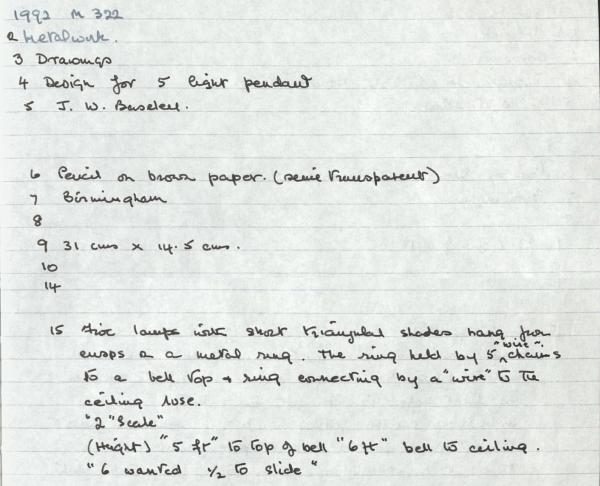 1992 M 322
2 Metalwork.
3 Drawings
4 Design for 5 light pendant
5 J. W. Baseley.
6 Pencil on brown paper. (semi transparent)
7 Birmingham
8
9 31 cms x 14.5 cms.
10
14
15 Five lamps with short triangular shades hang from
cusps on a metal ring. The ring held by 5 "wire" chains
to a bell top + ring connecting by a "wire" to the
ceiling rose.
"2" Scale"
(Height) "5 ft" to top of bell "6 ft" bell to ceiling.
"6 wanted 1/2 to slide"